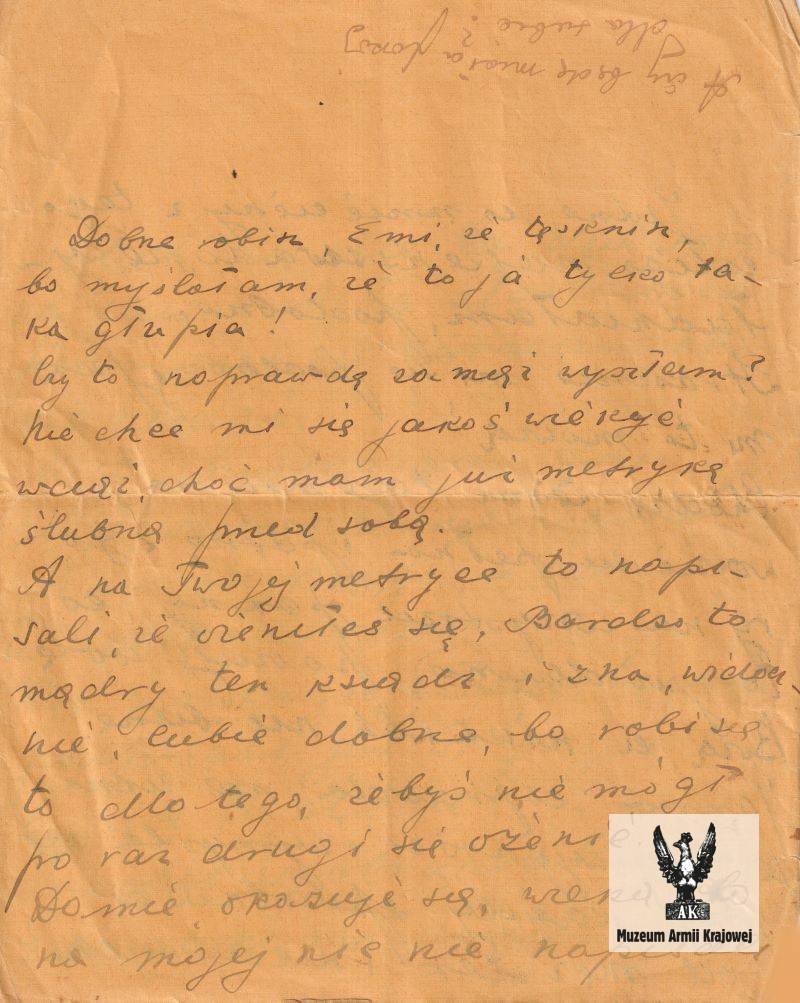 A czy będę miała pokój
dla siebie?
Dobrze robisz, Emi, że tęsknisz,
bo myślałam, że to ja tylko ta-
ka głupia!
Czy to naprawdę za mąż wyszłam?
Nie chce mi się jakoś wierzyć
wciąż, choć mam już metrykę
ślubną przed sobą.
A na Twojej metryce to napi-
sali, że ożeniłeś się. Bardzo to
mądry ten ksiądz i zna, widocz-
nie, Ciebie dobrze, bo robi się
to dlatego, żebyś nie mógł
po raz drugi się ożenić
Do mnie okazuje się,
na mojej nic nie
AK
Muzeum Armii Krajowej